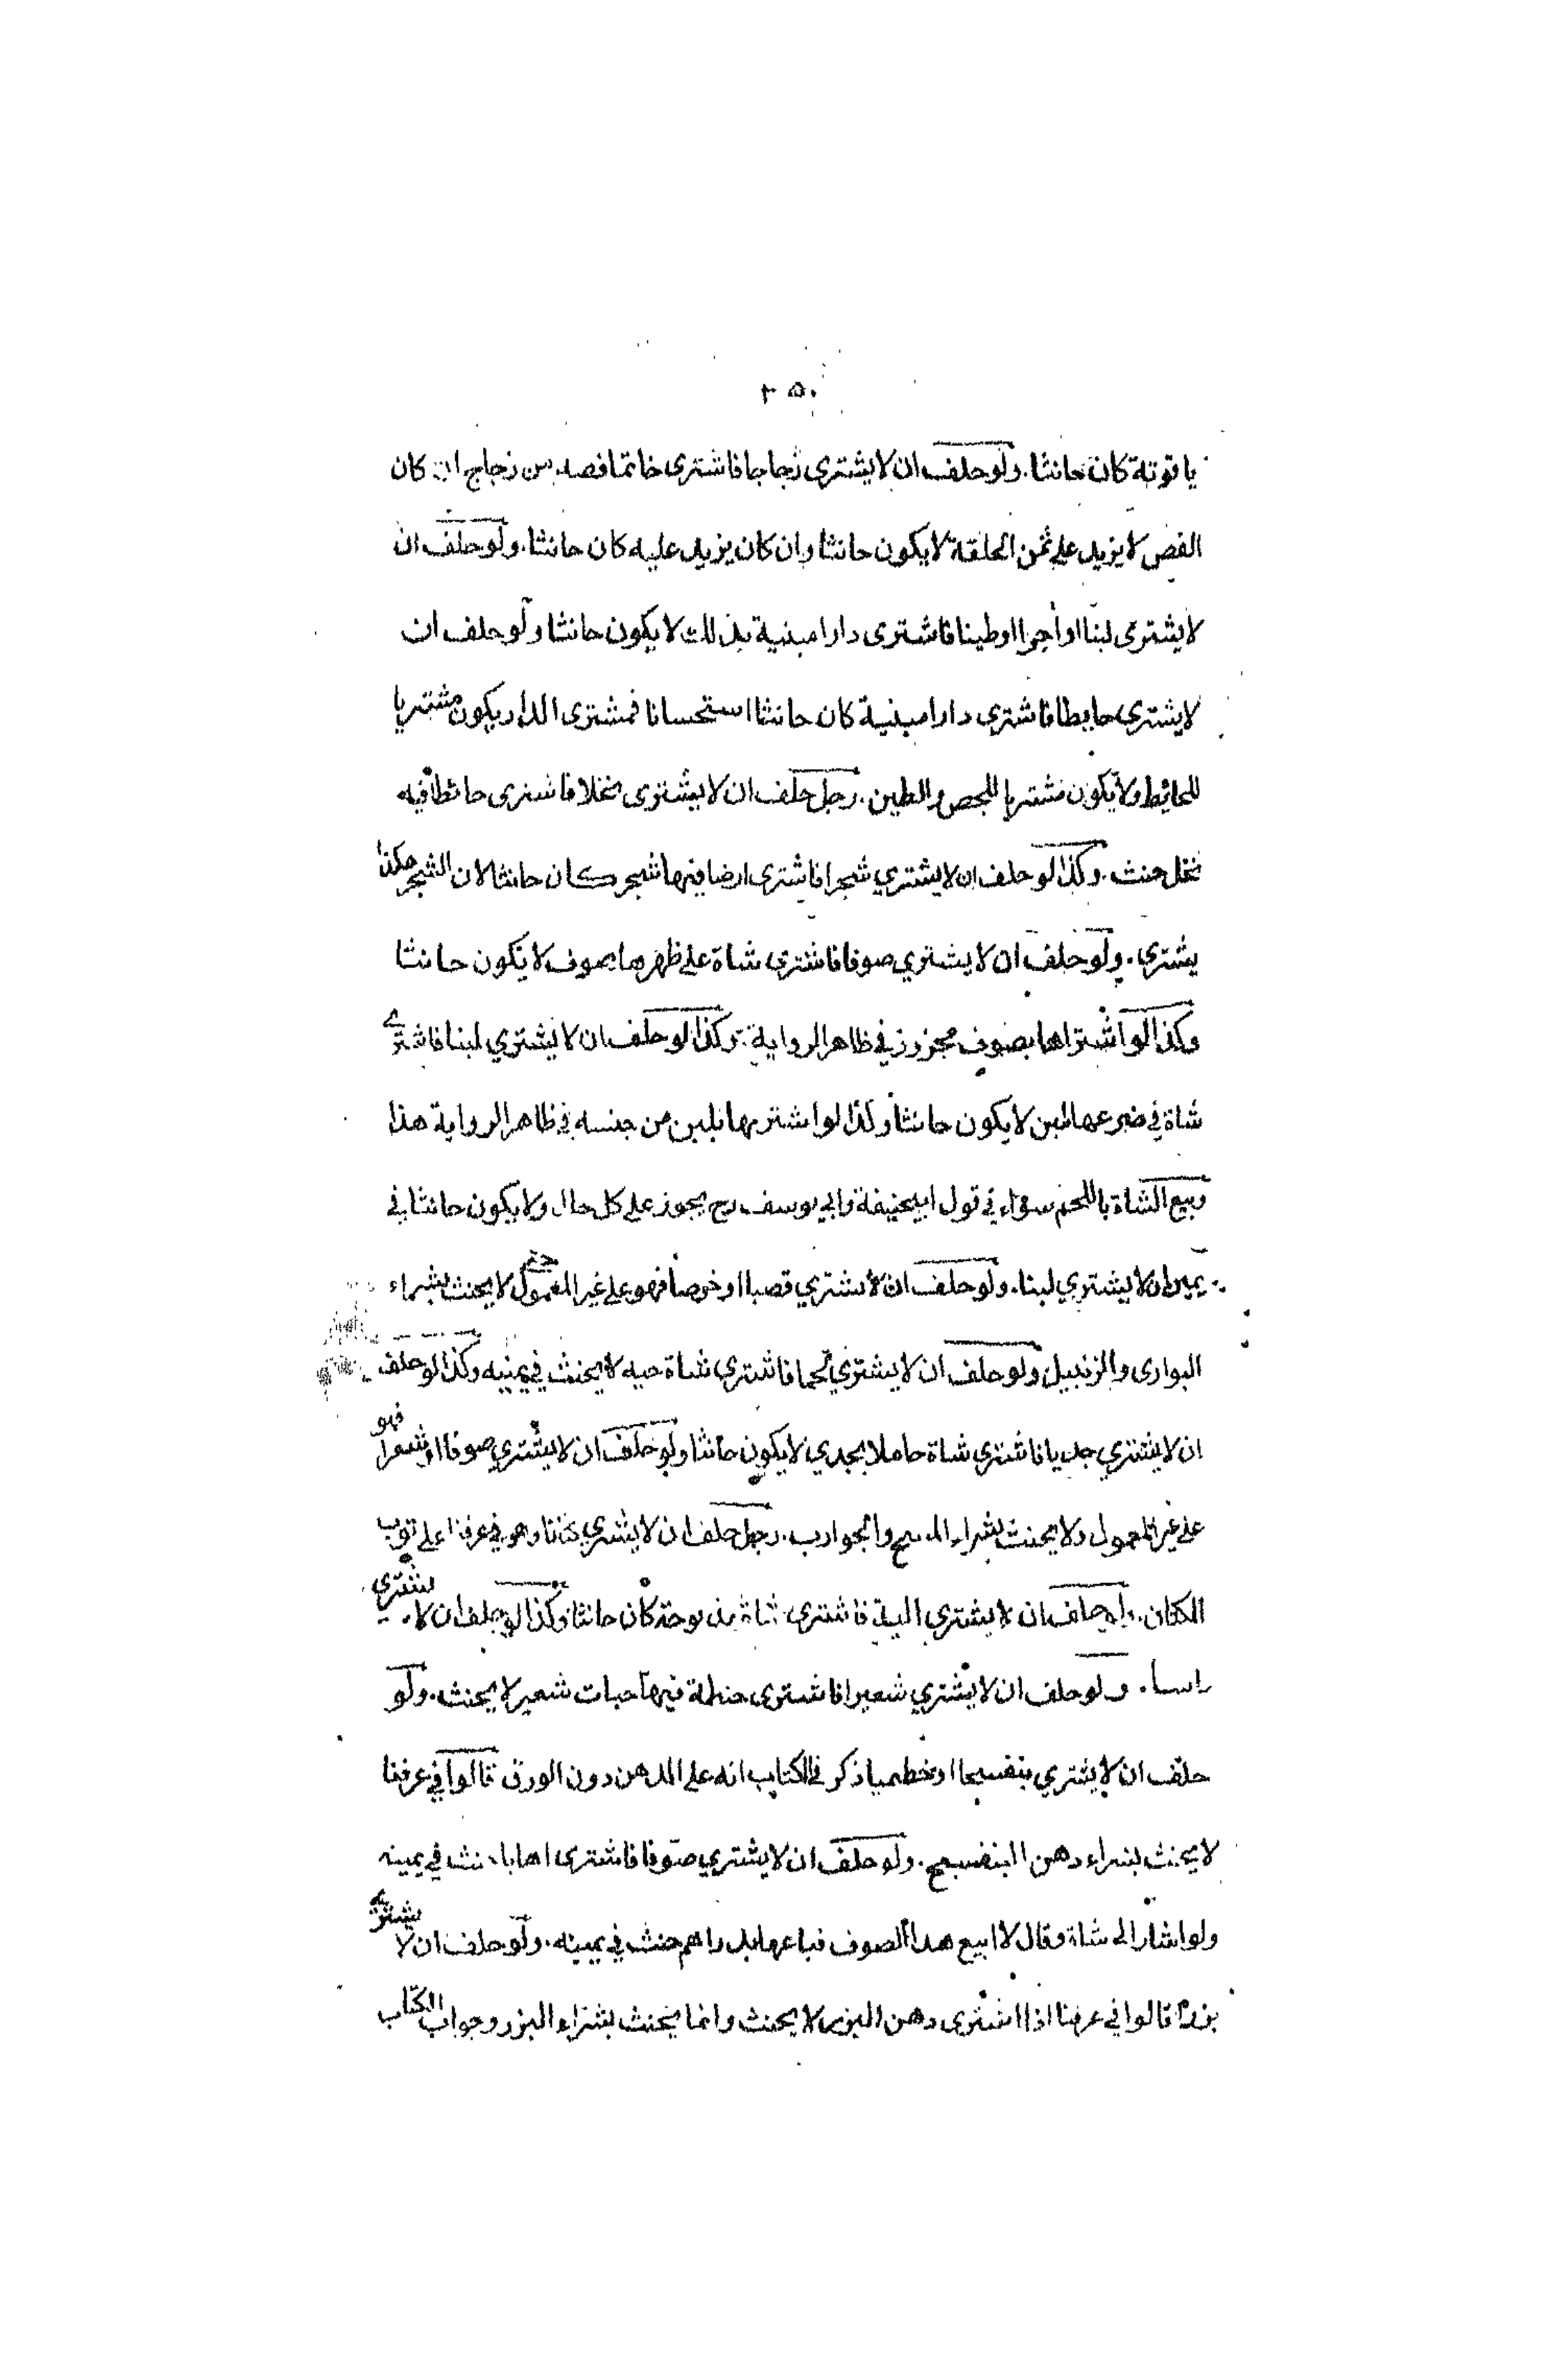 ٢٥٠
ياقوتة كان حانثا. ولو حلف ان لا يشتري زجاجا فاشترى خاتما فصه من زجاج ان كان
الفص لا يزيد على ثمن الحلقة لا يكون حانثا وان كان يزيد عليه كان حانثا. ولو حلف ان
لا يشتري لبنا او آجرا او طينا فاشترى دارا مبنية بذلك لا يكون حانثا ولو حلف ان
لا يشتري حايطا فاشتري دارا مبنية كان حانثا استحسانا فمشتري الدار يكون مشتريا
للحائط ولا يكون مشتريا للجص والطين. رجل حلف ان لا يشتري نخلا فاشترى حائطا فيه
نخل حنث. وكذا لو حلف ان لا يشتري شجرا فاشترى ارضا فيها شجر كان حانثا لان الشجر هكذا
يشتري. ولو حلف ان لا يشتري صوفا فاشترى شاة على ظهرها صوف لا يكون حانثا
وكذا لو اشتراها بصوف مجزوز في ظاهر الرواية. وكذا لو حلف ان لا يشتري لبنا فاشترے
شاة في ضرعها لبن لا يكون حانثا وكذا لو اشتريها بلبن من جنسه في ظاهر الرواية هذا
وبيع الشاة باللحم سواء في قول ابيحنيفة وابي يوسف رح يجوز على كل حال ولا يكون حانثا في
يمين ان لا يشتري لبنا. ولو حلف ان لا يشتري قصبا او خوصا فهو على غير المعمول حتى لا يحنث بشراء
البواری والزنبيل ولو حلف ان لا يشتري لحما فاشترى شاة حيه لا يحنث في يمينه وكذا لو حلف
ان لا يشتري جديا فاشترى شاة حاملا بجدي لا يكون حانثا ولو حلف ان لا يشتري صوفا او شعرا فهو
على غير المعمول ولا يحنث بشراء المسح والجوارب. رجل حلف ان لا يشتري كتانا وهو في عرفنا على ثوب
الكتان. ولو حلف ان لا يشتري الية فاشترى شاة مذبوحة كان حانثا وكذا لو حلف ان لا يشتري
راسا. ولو حلف ان لا يشتري شعيرا فاشترى حنطة فيها حبات شعير لا يحنث. ولو
حلف ان لا يشتري بنفسجا او خطميا ذكر في الكتاب انه على الدهن دون الورق قالوا في عرفنا
لا يحنث بشراء دهن البنفسج. ولو حلف ان لا يشتري صوفا فاشترى اهابا حنث في يمينه
ولو اشار الى شاة وقال لا ابيع هذا الصوف فباعها بدراهم حنث في يمينه. ولو حلف ان لا يشترے
بزرا قالوا في عرفنا اذا اشترى دهن البزر لا يحنث وانما يحنث بشراء البزر وجواب الكتاب